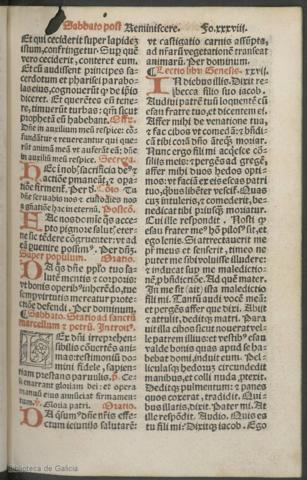 Sabbato post Reminiscere. Fo.xxxviii.
Et qui ceciderit super lapidez
istum, confringetur: Sup quē
vero ceciderit, conteret eum.
Et cū audissent principes sa-
cerdotum et pharisei parabo-
las eius, cognouerūt ꝙ de ipsis
diceret. Et querētes eū tene-
re, timuerūt turbas: qm̄ sicut
prophetā eū habebant. Offer.
Dn̄e in auxilium meū respice: cō-
fundātur ⁊ reuereantur qui que-
rūt animā meā vt auferāt eā: dn̄e
in auxiliū meū respice. Secreta.
Hec in nobis sacrificia de⁹ ⁊
actiōe pmaneāt, ⁊ opa-
tiōe firment̄. Per d. Cōio Tu
dn̄e seruabis nos ⁊ custodies nos
a gn̄atiōe hac in eternū. Postcō.
Fac nos dn̄e
pignore salut̄, eter-
ne sic tēdere cōgruenter: vt ad
eā
Super populum. Oratio.
Da q̄s dn̄e pplo tuo salu-
tē mentis ⁊ corporis:
vt bonis operib⁹ inherēdo, tue
semp virtutis mereatur prote-
ctiōe defendi. Per dominum.
Sabbato. Statio ad sanctū
marcellinum ⁊ petrū. Introit⁹.
Lex dn̄i irreprehen-
sibilis cōuertēs ani-
mas: testimoniū do-
mini fidele, sapien-
tiam prestans paruulis. p̄. Ce-
li enarrant gloriam dei: et opera
manuū eius annūciat firmamen-
tum. Gloria patri. Oratio.
Da q̄sum⁹ dn̄e nr̄is effe-
ctum ieiuniis salutarē:
vt castigatio carnis assūpta,
ad nr̄arū vegetationē transeat
animarū. Per dominum.
Lectio libri Genesis. xxvii.
In diebus illis. Dixit re-
becca filio suo iacob.
Audiui patrē tuū loquentē cū
esau fratre tuo, et dicentem ei.
Affer mihi de venatione tua,
⁊ fac cibos vt comedā: ⁊ bn̄di-
cā tibi corā dn̄o āteꝗ̄ moriar.
Nunc ergo fili mi acq̄esce cō-
siliis meis: ⁊ pergēs ad gregē,
affer mihi duos hedos opti-
mos: vt faciā ex eis escas patri
tuo, q̄bus libēter vescit̄. Quas
cū intuleris, ⁊ comederit, be-
nedicat tibi priusꝗ̄ moriatur.
Cui ille respondit. Nosti ꝙ
esau frater me⁹ hō pilos⁹ sit, et
ego lenis. Si attrectauerit me
pr̄ meus et senserit, timeo ne
putet me sibi voluisse illudere:
⁊ inducat sup me maledictio-
nē, p bn̄dictiōe. Ad quē mater.
In me sit (ait) ista maledictio
fili mi. Tantū audi vocē meā:
et pergēs affer que dixi. Abiit
⁊ attulit, deditꝗ̄ matri. Para-
uit illa cibos sicut nouerat vel-
le patrem illius: et vestib⁹ esau
valde bonis quas apud se ha-
bebat domi, induit eum. Pel-
liculasꝗ̄ hedorum circundedit
manibus, et colli nuda ꝓtexit.
Deditꝗ̄ pulmentum: ⁊ panes
quos coxerat, tradidit. Qui-
bus illatis, dixit. Pater mi. At
ille respōdit. Audio. Quis es
tu fili mi? Dixitꝗ̄ iacob. Ego
Biblioteca de Galicia